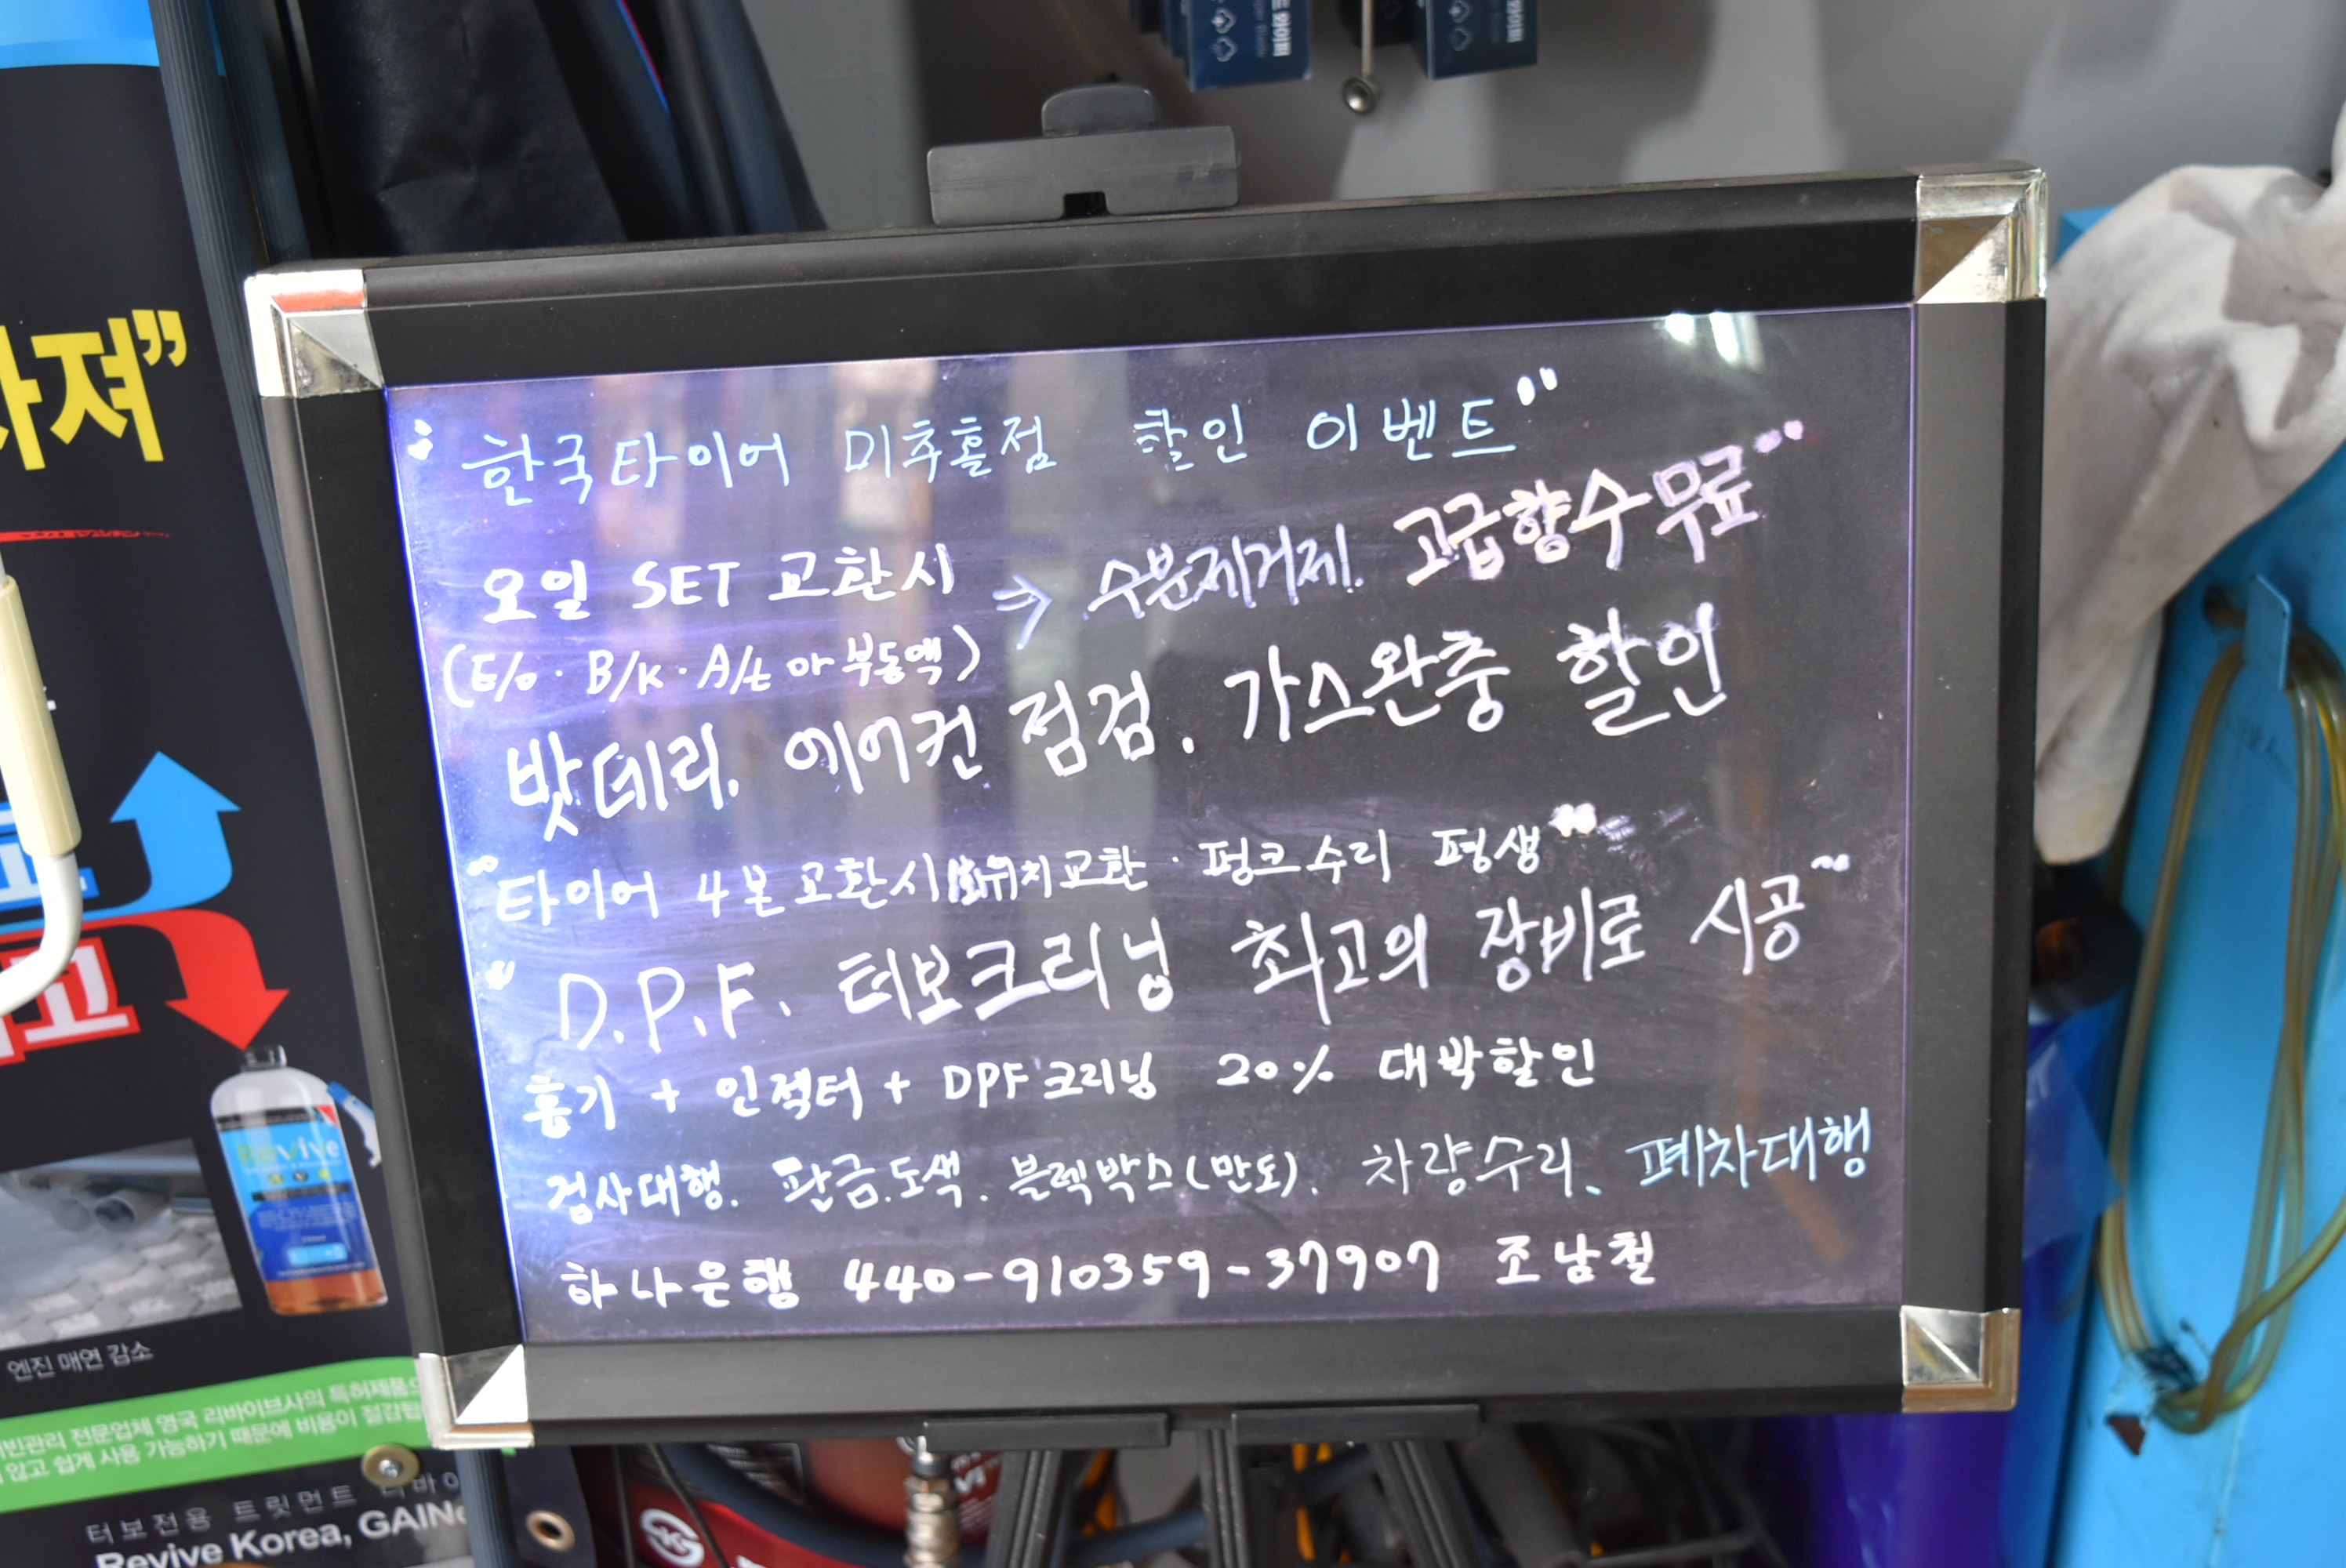 "한국타이어 미추홀점 할인 이벤트"
오일 SET 교환시 ⇒ 수분제거제. 고급향수 무료"
(E/o · B/K · A/t or 부동액)
밧데리. 에어컨 점검. 가스완충 할인
"타이어 4본 교환시 위치교환 · 펑크수리 평생"
"D.P.F. 터보크리닝 최고의 장비로 시공~
흡기 + 인젝터 + DPF크리닝 20% 대박할인
검사대행. 판금.도색. 블렉박스(만도). 차량수리. 폐차대행
하나은행 440-910359-37907 조남철
사져"
고
고
Revive
엔진 매연 감소
빈관리 전문업체 영국 리바이브사의 특허제품으
않고 쉽게 사용 가능하기 때문에 비용이 절감됩
터보전용 트릿먼트 리바이
Revive Korea, GAIN
와이퍼